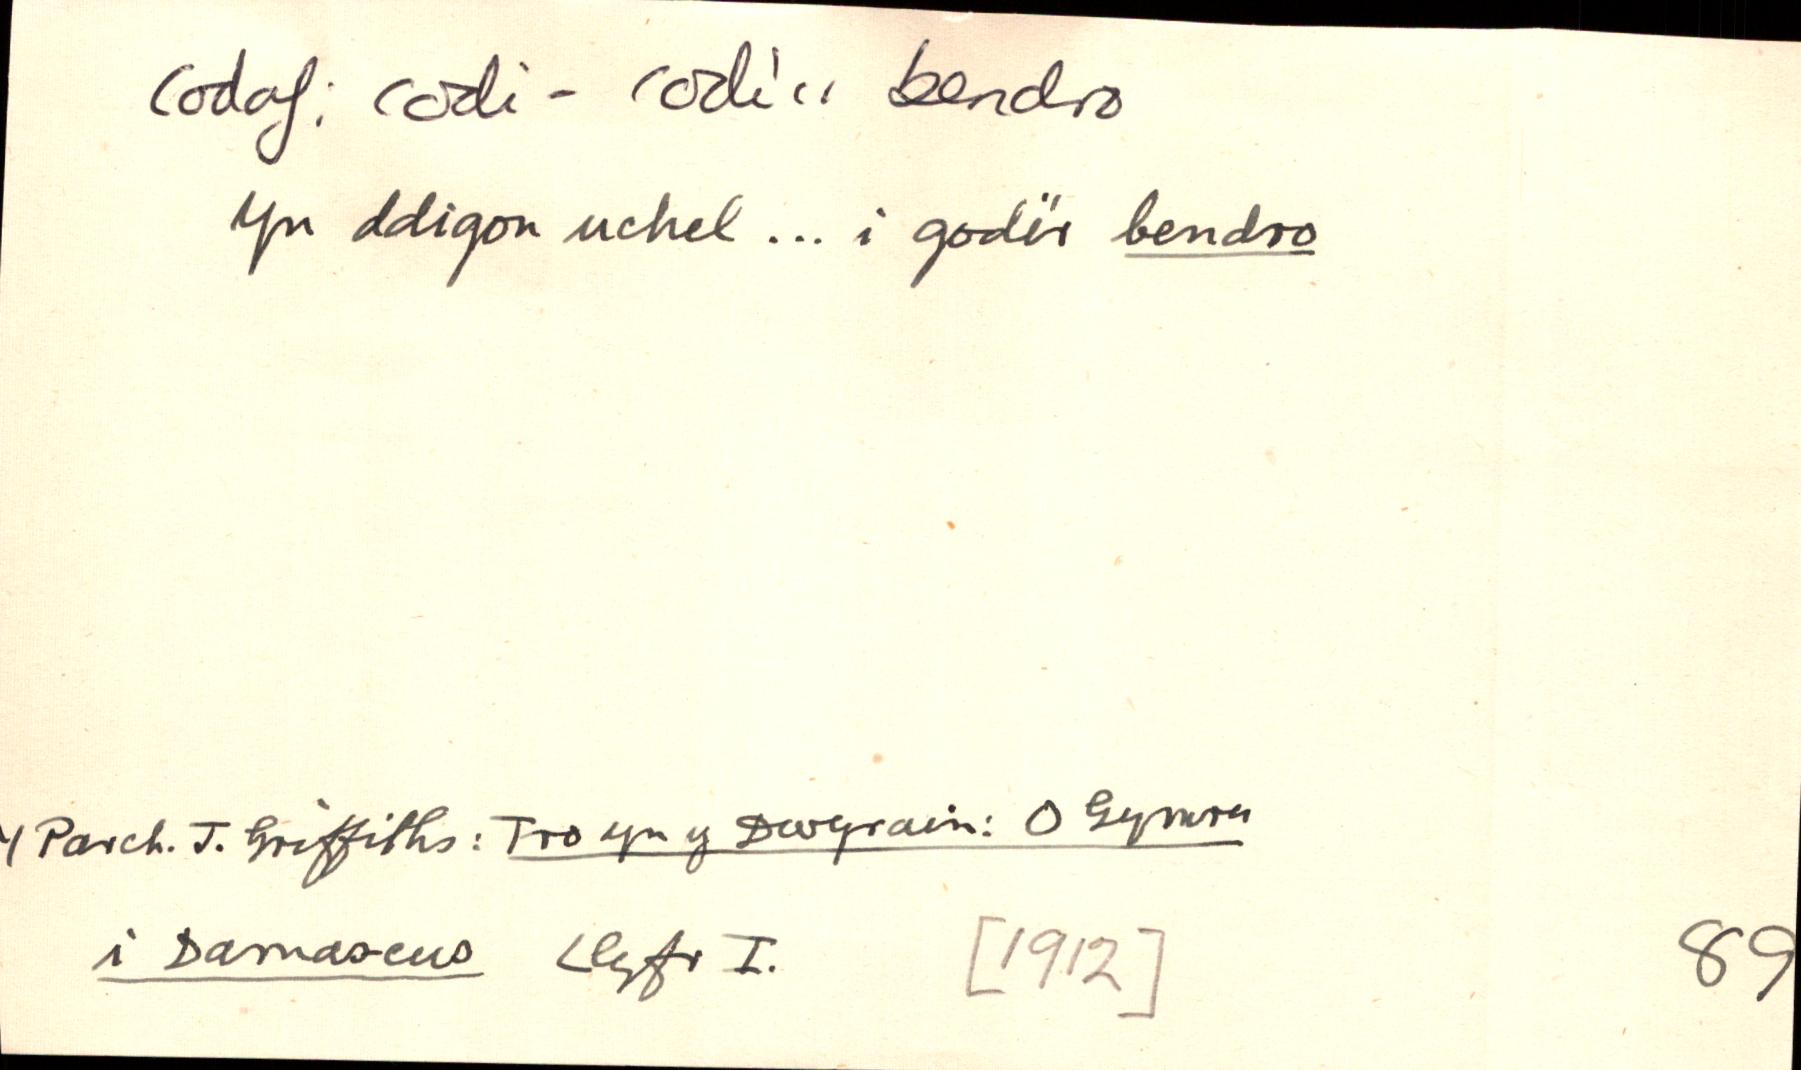 codaf: codi - codi'r bendro
Yn ddigon uchel ... i godi'r bendro
Y Parch. J. Griffiths: Tro yn y Dwyrain: O Gymru
i Damascus Llyfr I. [1912] 89